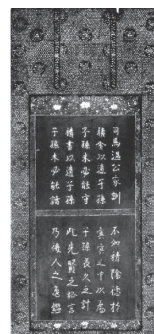 司馬溫公家訓
積金以遺子孫
子孫未必能守
積書以遺子孫
子孫未必能讀
不如積陰德於
冥冥之中以為
子孫長久之計
此先賢之格言
乃後人之龜鑑